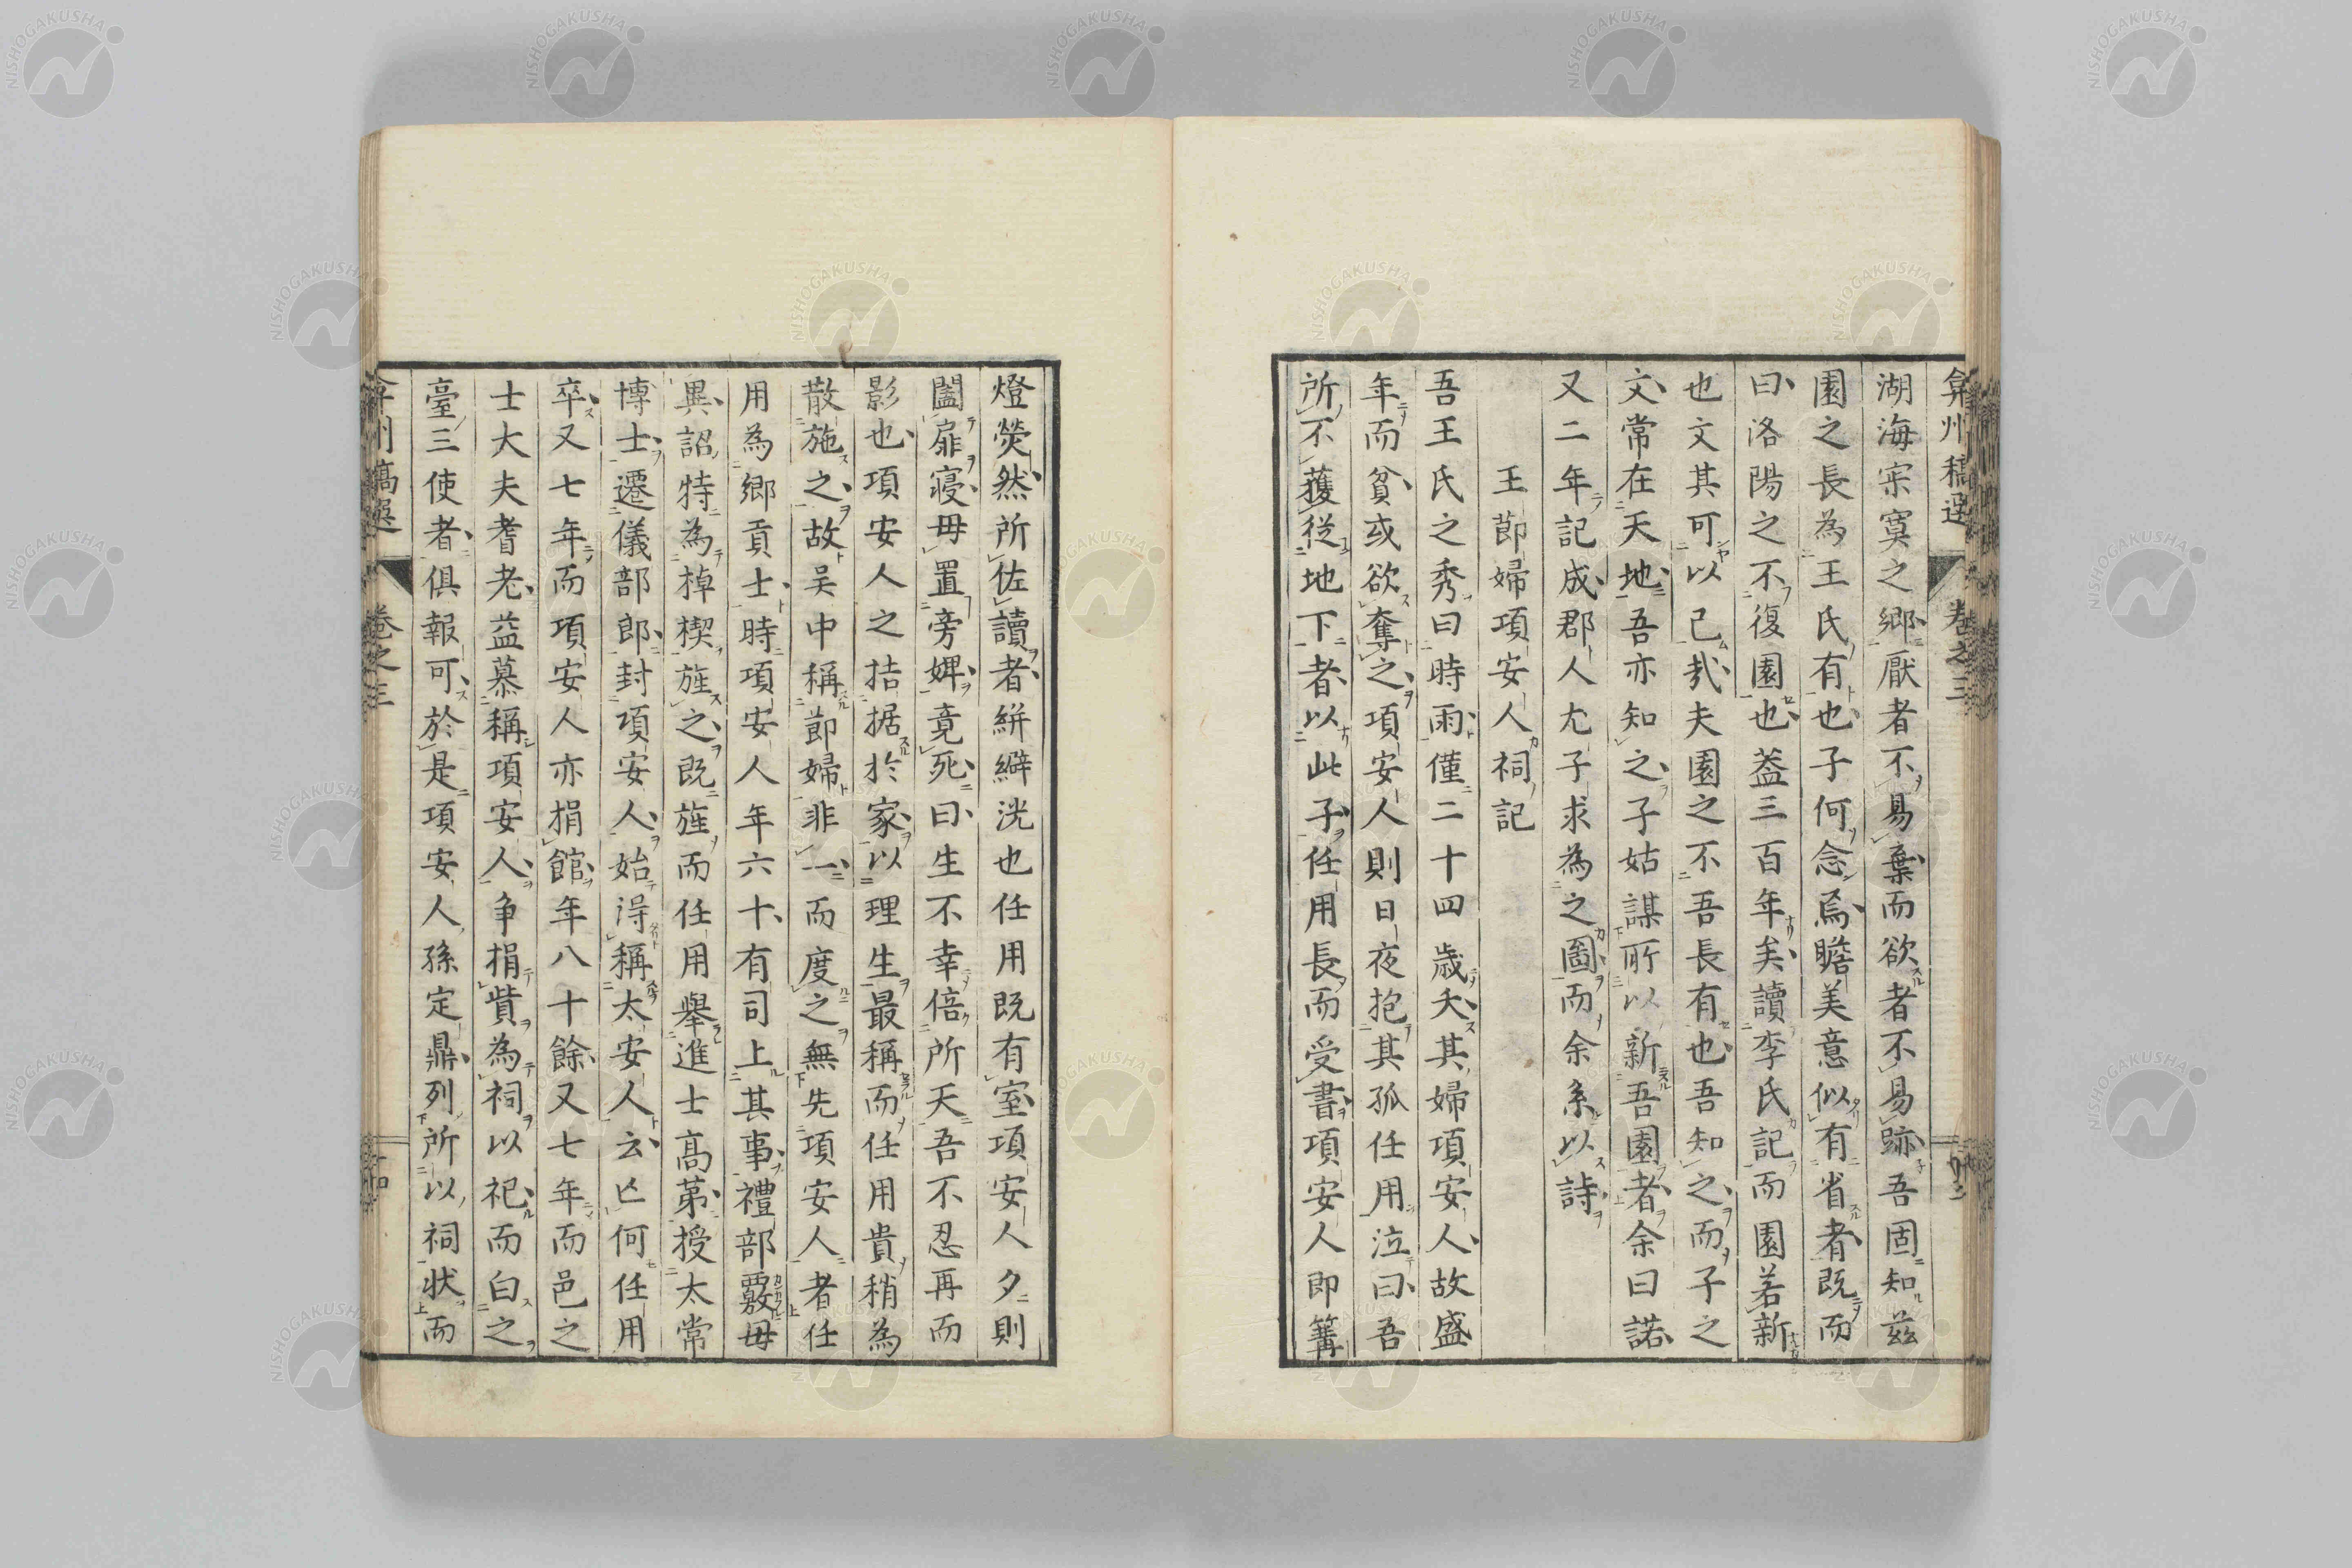 弇州稿選 卷之三
湖海寂寞之鄉厭者不易棄而欲者不易跡吾固知茲
園之長為王氏有也子何念焉瞻美意似有省者既而
曰洛陽之不復園也蓋三百年矣讀李氏記而園若新
也文其可以已哉夫園之不吾長有也吾知之而子之
文常在天地吾亦知之子姑謀所以新吾園者余曰諾
又二年記成郡人尤子求為之圖而余系以詩
王節婦項安人祠記
吾王氏之秀曰時雨僅二十四歲夭其婦項安人故盛
年而貧或欲奪之項安人則日夜抱其孤任用泣曰吾
所不獲從地下者以此子任用長而受書項安人即篝
燈熒然所佐讀者絣澼洸也任用既有室項安人夕則
闔扉寢毋置旁婢竟死曰生不幸倍所天吾不忍再而
影也項安人之拮据於家以理生最稱而任用貴稍為
散施之故吳中稱節婦非一而度之無先項安人者任
用為鄉貢士時項安人年六十有司上其事禮部覈毋
異詔特為棹楔旌之既旌而任用舉進士高第授太常
博士遷儀部郎封項安人始得稱太安人云亡何任用
卒又七年而項安人亦捐館年八十餘又七年而邑之
士大夫耆老益慕稱項安人爭捐貲為祠以祀而白之
臺三使者俱報可於是項安人孫定鼎列所以祠狀而
弇州稿選 卷之三